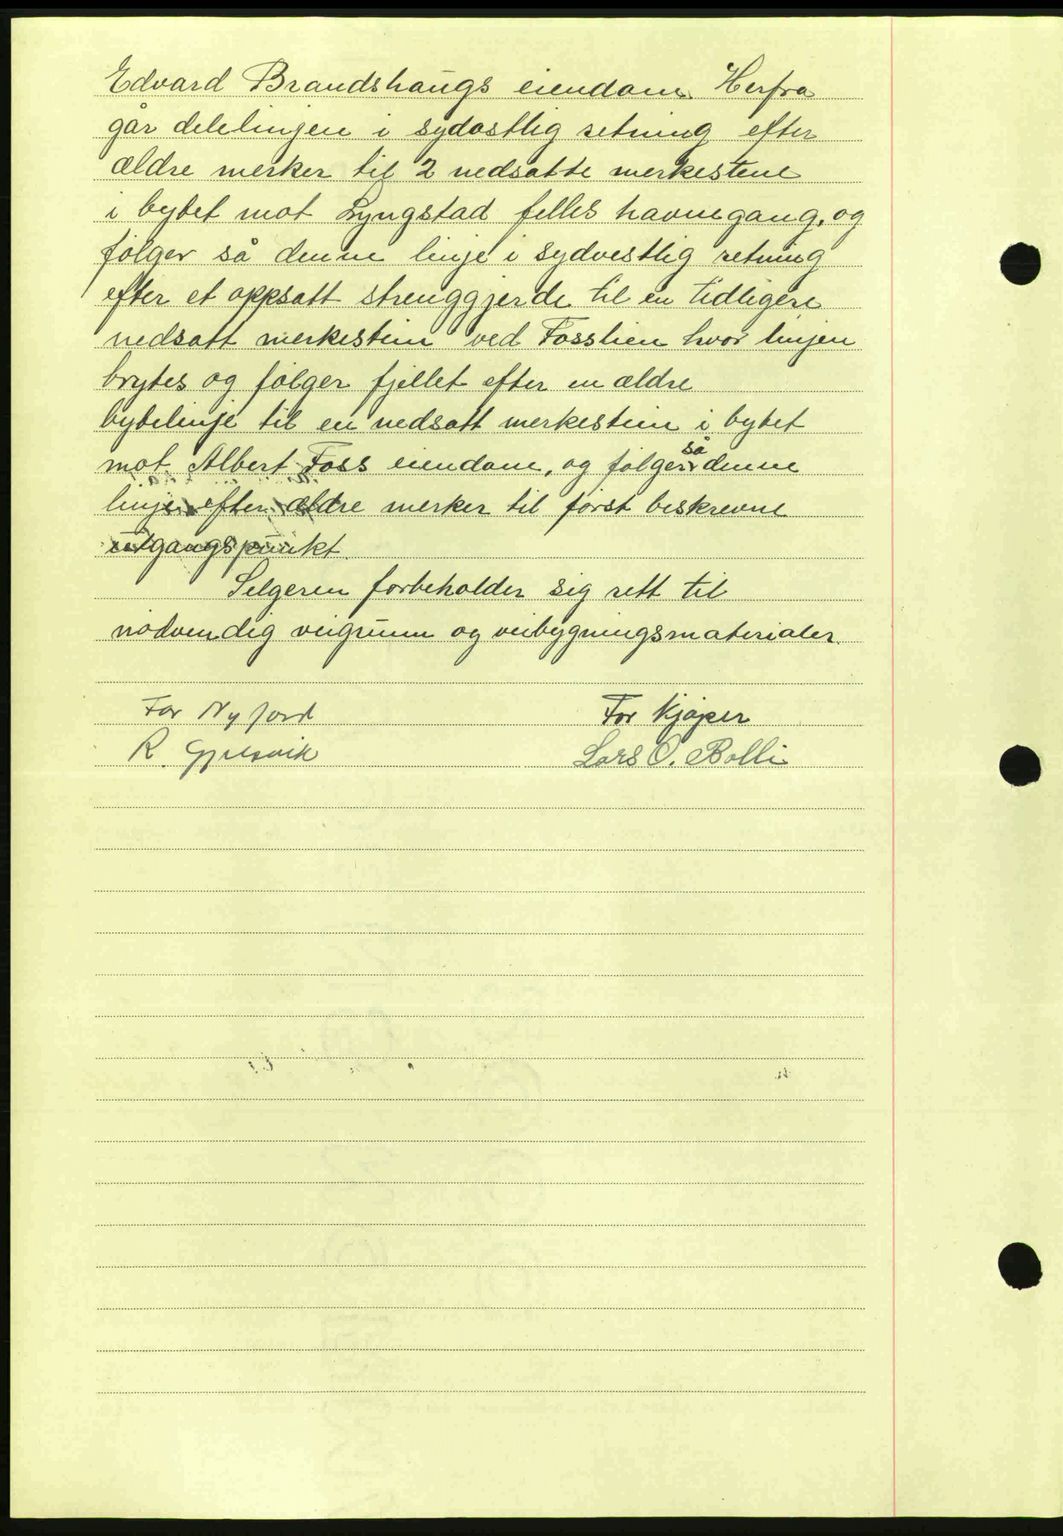 Edvard Brandshaugs eiendom. Herfra
går delelinjen i sydøstlig retning efter
ældre merker til 2 nedsatte merkestene
i bytet mot Lyngstad felles havnegang, og
følger så denne linje i sydvestlig retning
efter et oppsatt strenggjerde til en tidligere
nedsatt merkestein ved Fosslien hvor linjen
brytes og følger fjellet efter en ældre
bytelinje til en nedsatt merkestein i bytet
mot Albert Foss eiendom, og følger så denne
linje efter ældre merker til først beskrevne
utgangspunkt.
Selgeren forbeholder sig rett til
nødvendig veigrunn og veibygningsmaterialer.
For Nyjord
For Kjøper
R. Gjelsvik
Lars O. Bolli